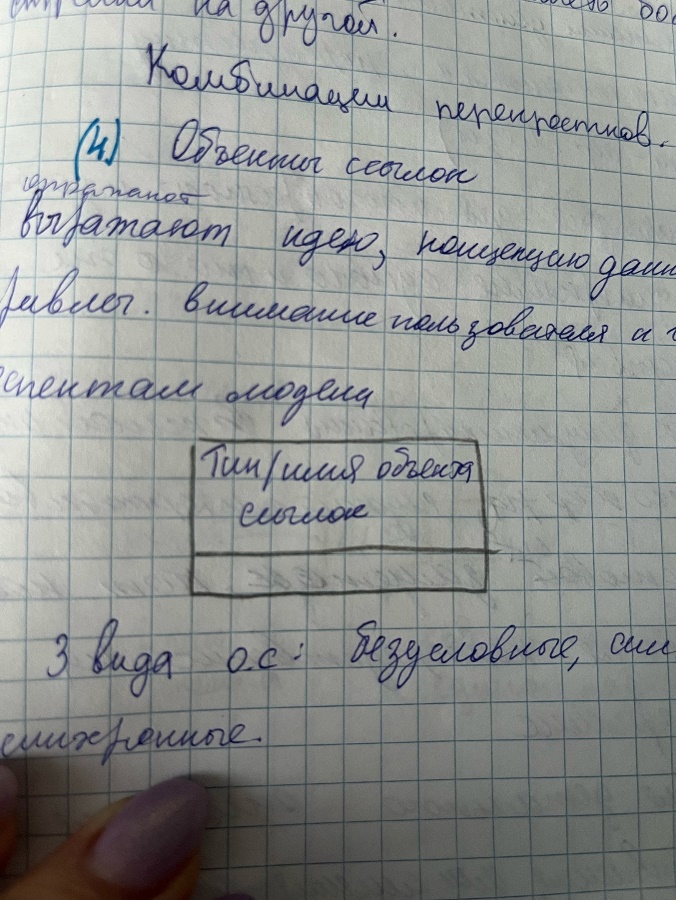 на другой.
Комбинации перекрестков.
(4) Объекты ссылок
отражают
выражают идею, концепцию данн
привлеч. внимание пользователя к
аспектам модели
Тип/имя объекта
ссылок
3 вида о.с: безусловные, син
синхронные.